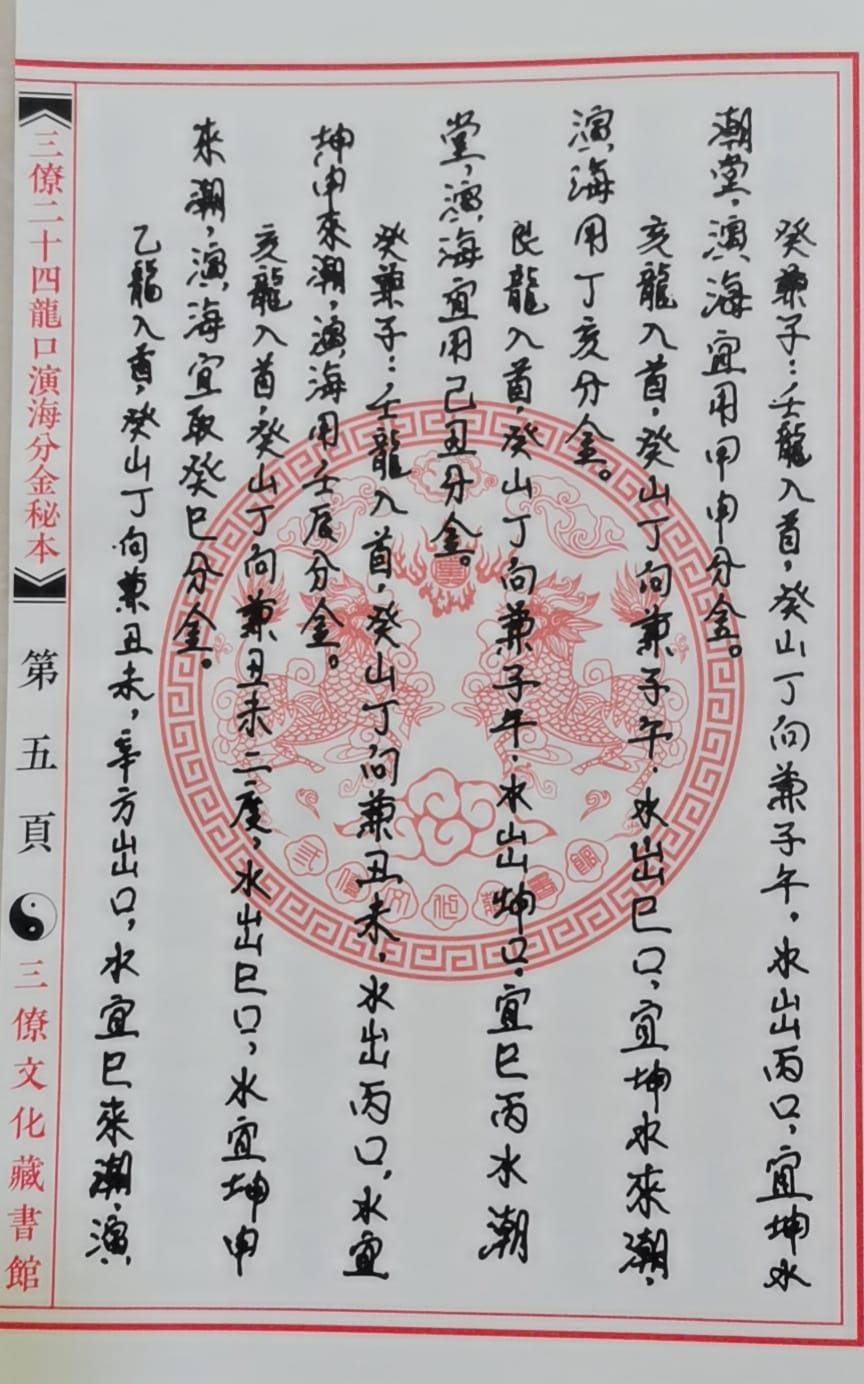 癸兼子:壬龍入首,癸山丁向兼子午,水出丙口,宜坤水
潮堂,演海宜用甲申分金。
亥龍入首,癸山丁向兼子午.水出巳口,宜坤水來潮,
演海用丁亥分金。
艮龍入首,癸山丁向兼子午.水出坤口,宜巳丙水潮
堂,演海宜用己丑分金。
癸兼子:壬龍入首,癸山丁向兼丑未,水出丙口,水宜
坤申來潮,演海用壬辰分金。
亥龍入首,癸山丁向兼丑未二度,水出巳口,水宜坤申
來潮,演海宜取癸巳分金。
乙龍入首,癸山丁向兼丑未,辛方出口,水宜巳來潮.演
三僚二十四龍口演海分金秘本
第五頁
三僚文化藏書館